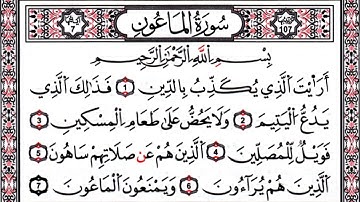 سُورَةُ المَاعُونِ
107
7
بِسْمِ اللَّهِ الرَّحْمَٰنِ الرَّحِيمِ
أَرَأَيْتَ الَّذِي يُكَذِّبُ بِالدِّينِ 1 فَذَٰلِكَ الَّذِي
يَدُعُّ الْيَتِيمَ 2 وَلَا يَحُضُّ عَلَىٰ طَعَامِ الْمِسْكِينِ 3
فَوَيْلٌ لِّلْمُصَلِّينَ 4 الَّذِينَ هُمْ عَن صَلَاتِهِمْ سَاهُونَ 5
الَّذِينَ هُمْ يُرَاءُونَ 6 وَيَمْنَعُونَ الْمَاعُونَ 7